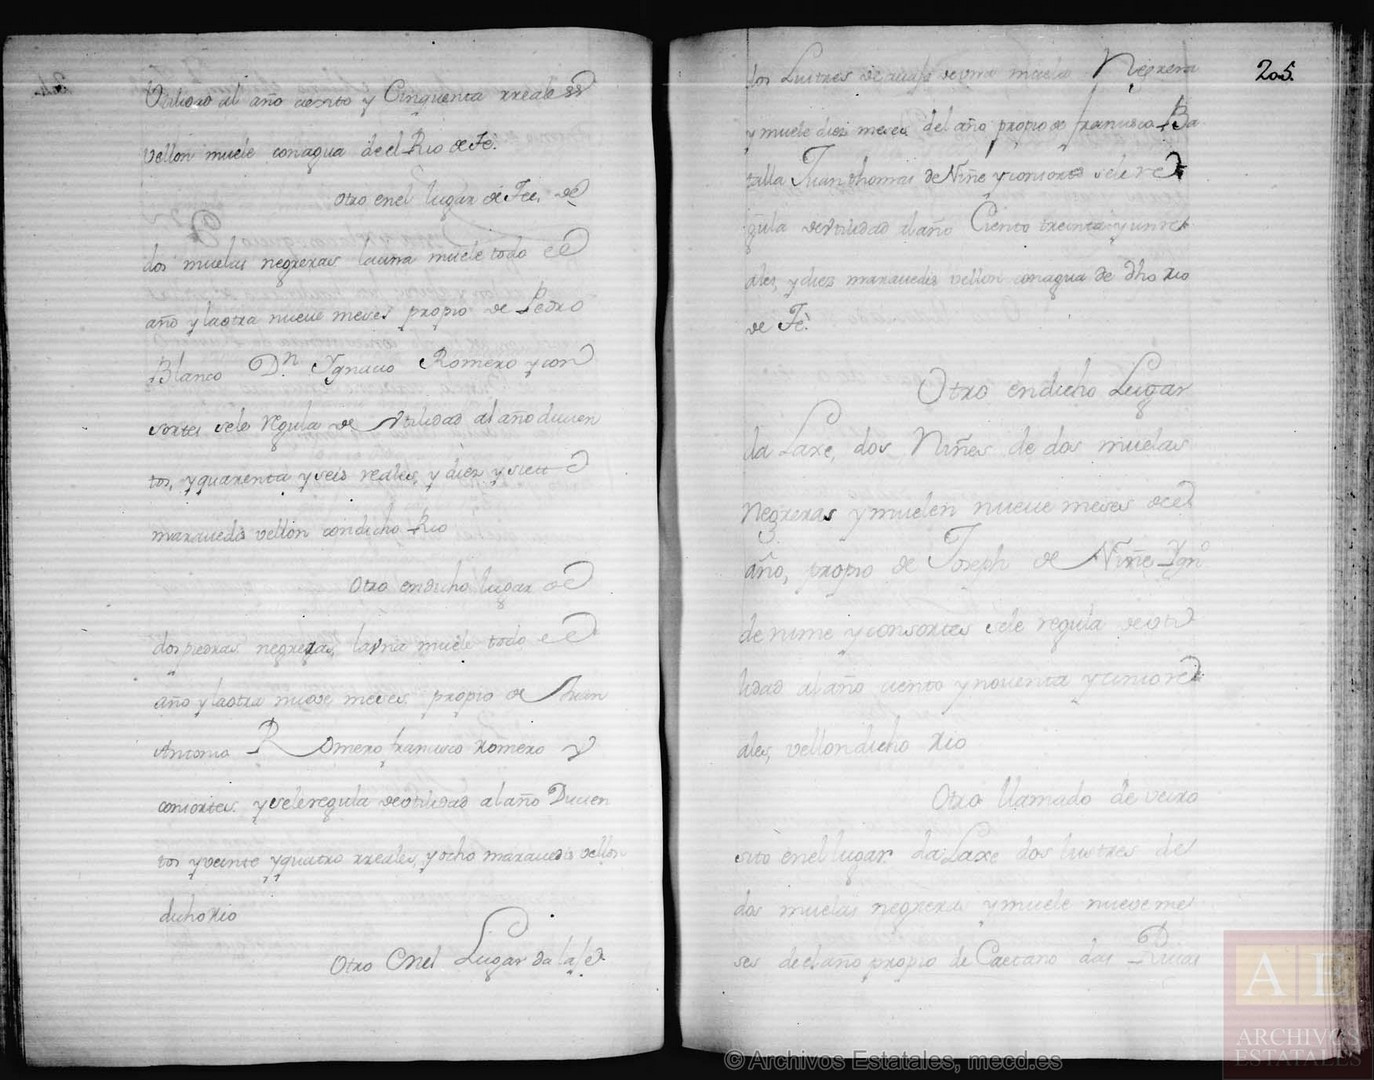 Utilidad al año ciento y Cinquenta rreales de
vellon muele conagua de el Rio de Fé.
Otro enel lugar de Fee, de
dos muelas negreras launa muele todo el
año y laotra nueue meses propio de Pedro
Blanco Dn Ygnacio Romero y con
sortes sele regula de Vtilidad al año ducien
tos, yquarenta yseis reales, y diez ysiete
marauedis vellon condicho Rio
Otro endicho lugar de
dos piedras negreras, lavna muele todo el
año ylaotra nueve meses propio de Juan
Antonio Romero francisco Romero y
consortes yseleregula deutilidad alaño Ducien
tos yveinte yquatro rreales, yocho marauedis vellon
dicho Rio
Otro Enel Lugar da laje
205.
dos Lustres de deuna muela Negrera
y muele diez meses del año propio de francisco Ba
talla Juan thomas de Niñe y consortes sele re
gula deVtilidad alaño Ciento treinta y un re
ales, y diez marauedis vellon conagua de dho Rio
de Fé.
Otro endicho Lugar
da Laxe, dos Niñes de dos muelas
Negreras y muelen nueue meses de el
año, propio de Joseph de Niñe Ygno
de nime yconsortes sele regula deuti
lidad alaño ciento ynoventa ycinco re
ales, vellon dicho Rio
Otro llamado de veiro
sito enel lugar da Laxe dos lustres de
dos muelas negreras ymuele nueve me
ses deel año propio de Caetano das Rucas
© Archivos Estatales, mecd.es
AE
ARCHIVOS
ESTATALES